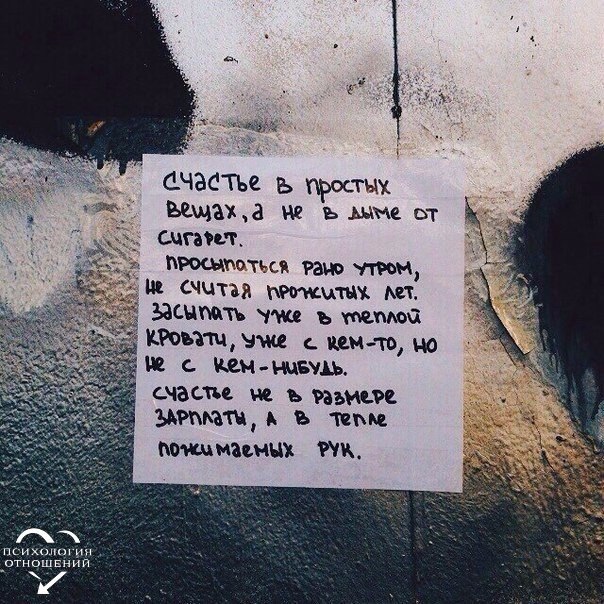 счастье в простых
вещах, а не в дыме от
сигарет.
просыпаться рано утром,
не считая прожитых лет.
засыпать уже в теплой
кровати, уже с кем-то, но
не с кем-нибудь.
счастье не в размере
зарплаты, а в тепле
пожимаемых рук.
ПСИХОЛОГИЯ
ОТНОШЕНИЙ